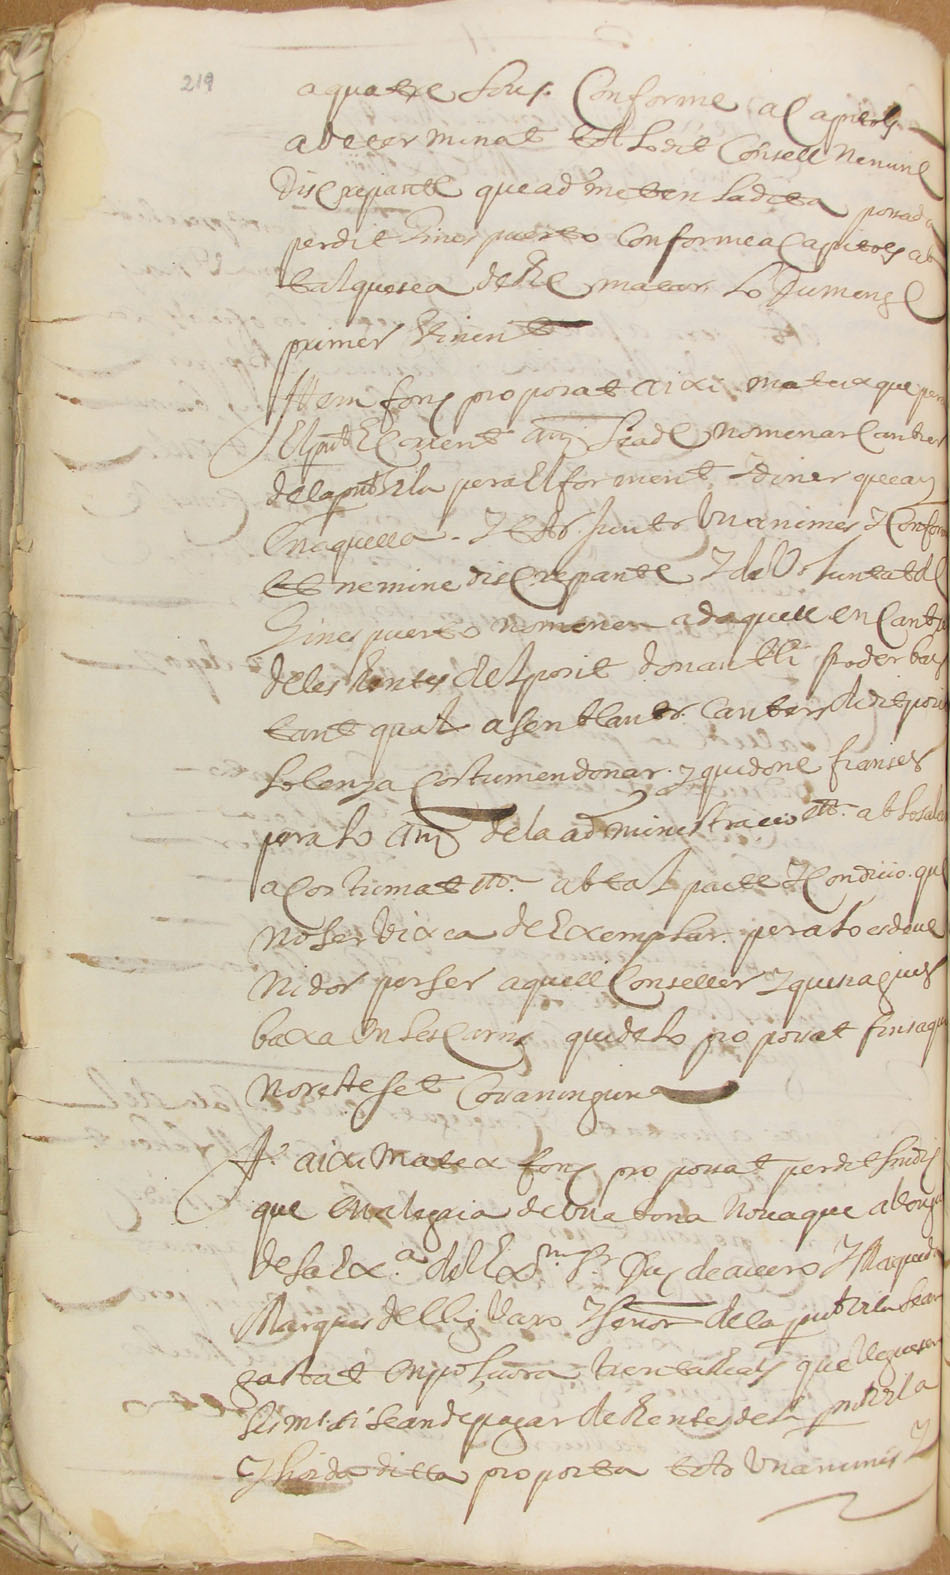 219
aquatre sous. Conforme al Capitols
adetterminat tot lo dit Consell Nemine
Discrepante que admeten la dita posada
per dit Gines puerto Conforme a Capitols ab
tal que sea de die maior lo Dumenge
primer vinent
Ittem fonch proposat aixi mateix que per
El pnt E Corrent any se ad nomenar Canter
de la pnt vila pera El forment y diner que ay
En aquella. Y tots Junts Unanimes y Conform
et nemine discrepante y de Voluntat de
Gines puerto nomenen ad aquell en Canter
deles Rentes del posit donantli poder bas
tant qual a semblants Canters de dit posit
Se lenza Costumen donar. y quidone fianses
pera lo any de la administracio ett.ª ab lo salari
acostumat ett.ª ab tal pacte y Condicio. que
No servixca de Exemplar. pera lo esdeve
nidor per ser aquell Conseller y que
baxa En ses Carns que de lo proposat fins aqui
No reste fet Cosa ninguna
It. aixi Mateix fonch proposat per dit Sindich
que En alegria de una bona Nova que
de sa Ex.ª del Ex.m S.r Duch de avero y Maqueda
Marques de Elig Varo y Señor de la pnt vila se an
gastat En polvora trenta Reals que
si sean de pagar de Rentes de la pnt vila
y hoida dita proposta tots Unanimes y